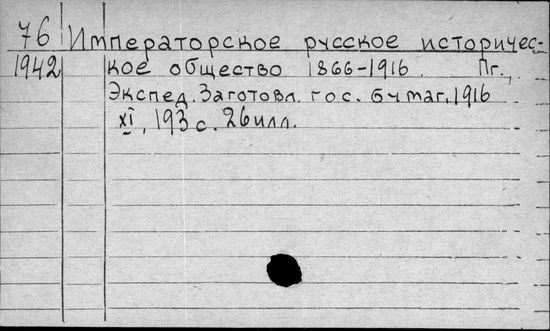 76 Императорское русское историчес-
1942 кое общество 1866-1916. Пг.,
Экспед. Заготовл. гос. бумаг, 1916
XI, 193 с. 26 илл.